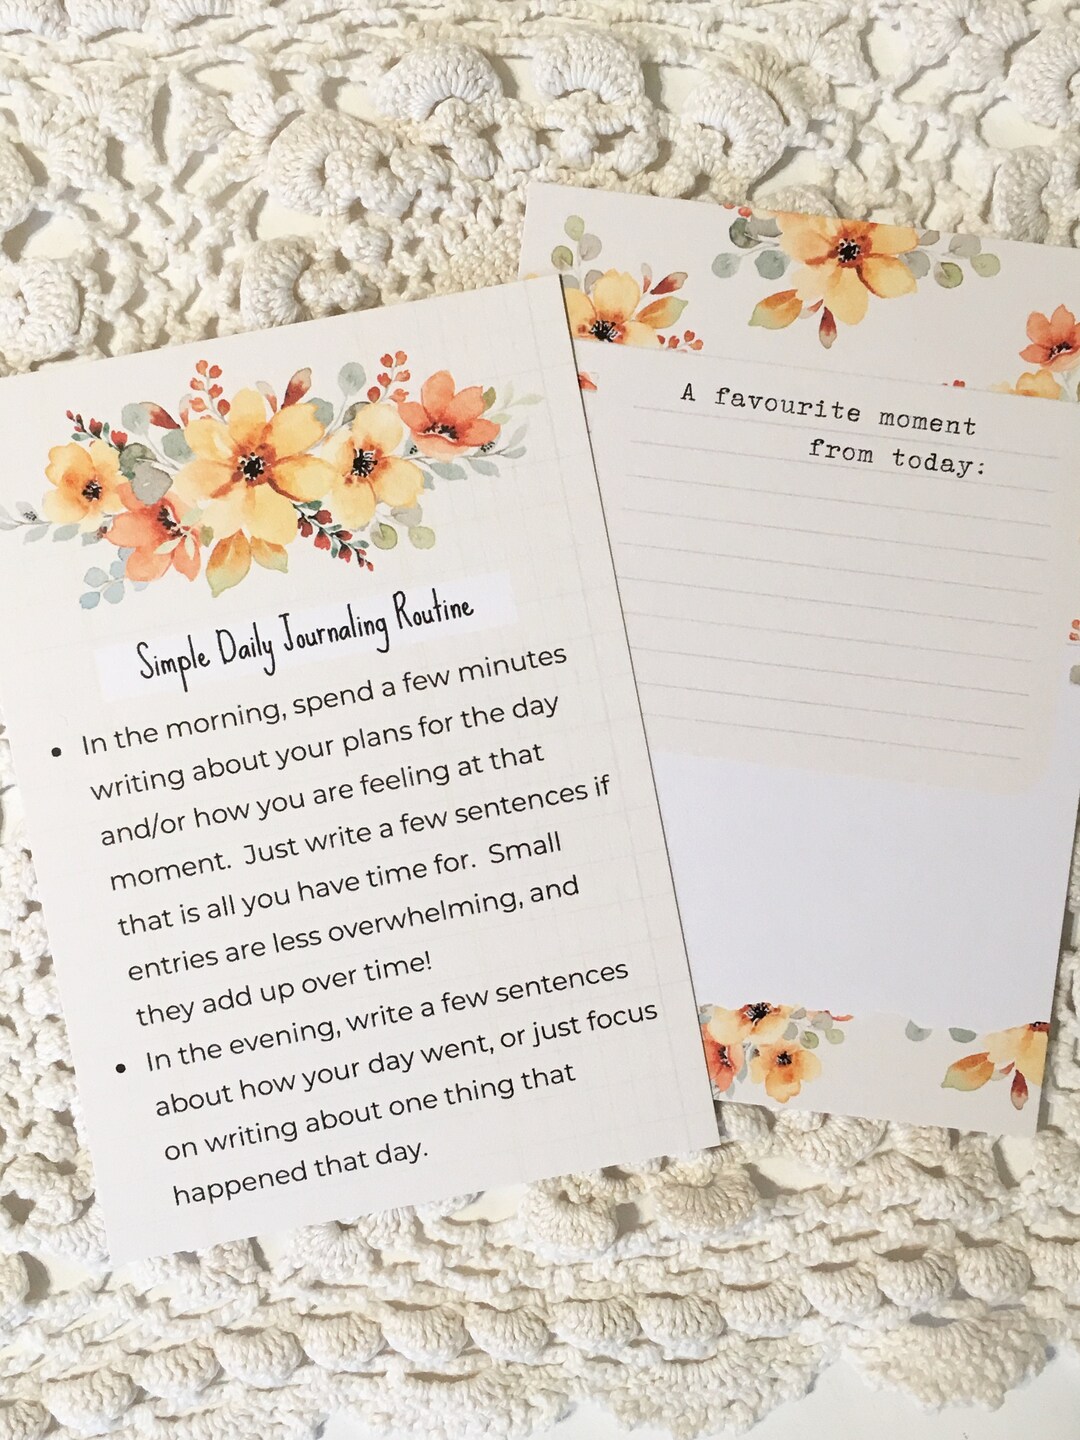 Simple Daily Journaling Routine
• In the morning, spend a few minutes
writing about your plans for the day
and/or how you are feeling at that
moment. Just write a few sentences if
that is all you have time for. Small
entries are less overwhelming, and
they add up over time!
• In the evening, write a few sentences
about how your day went, or just focus
on writing about one thing that
happened that day.
A favourite moment
from today: